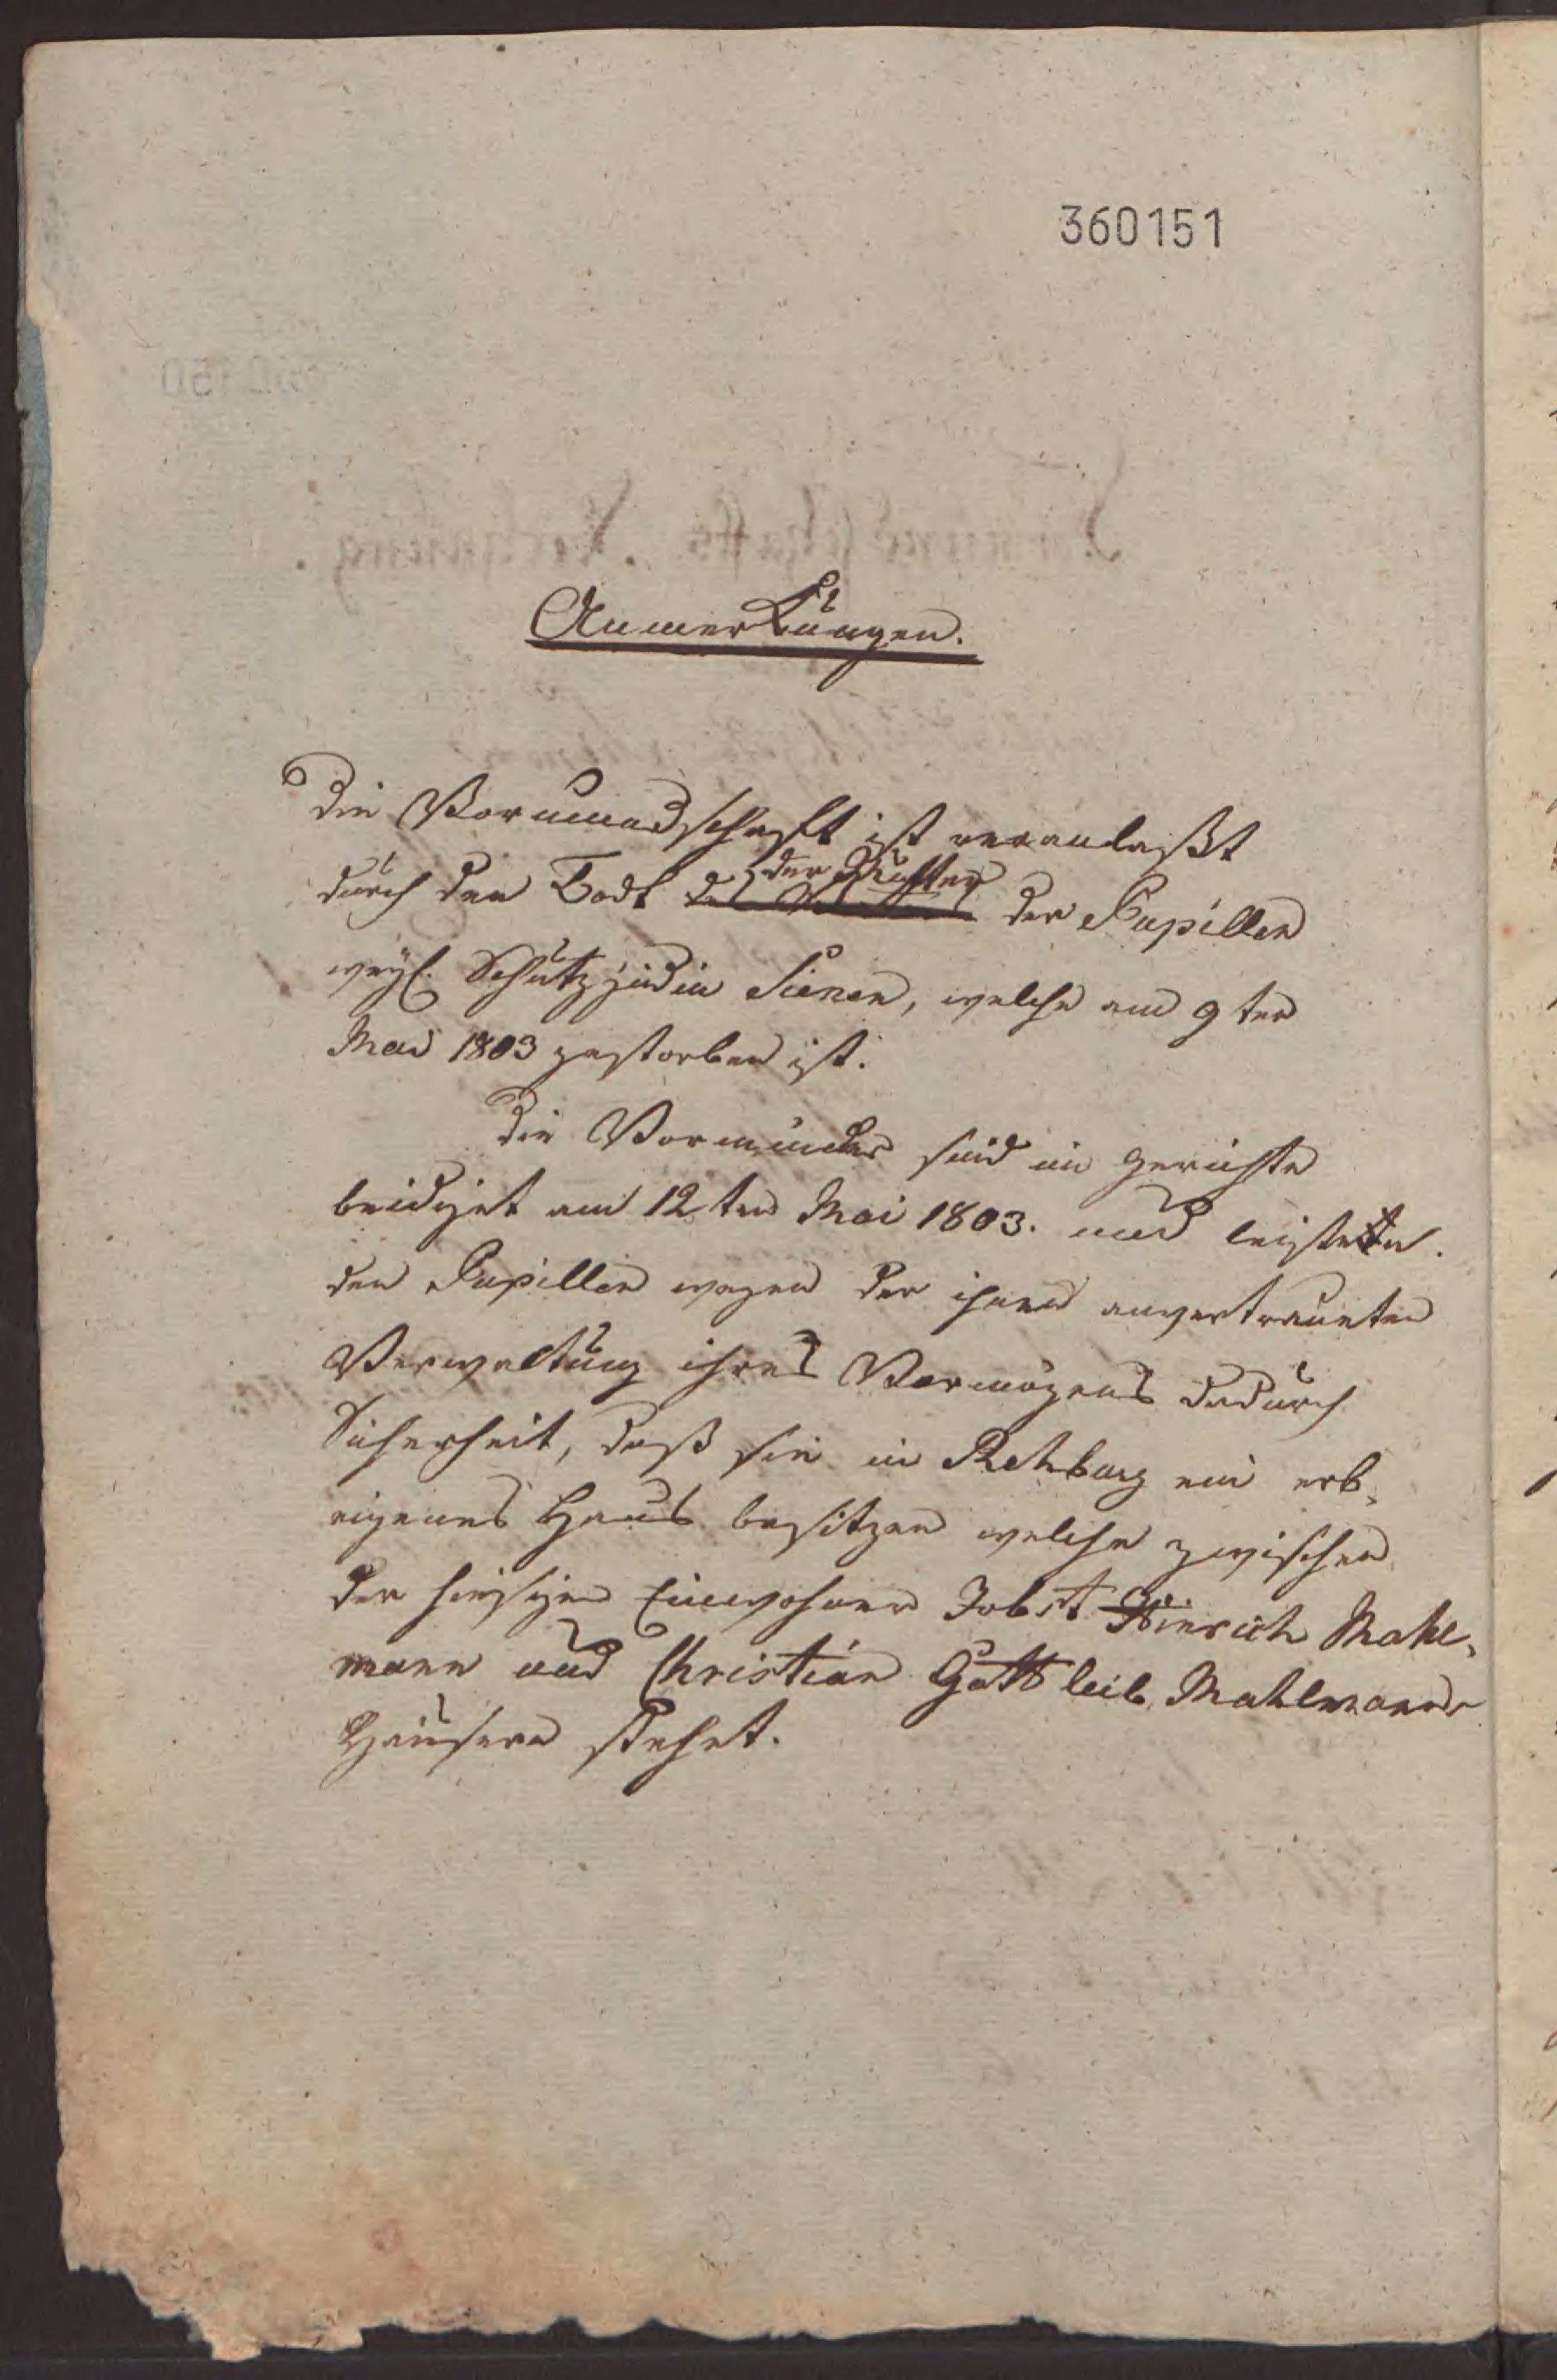 360151
Anmerkungen.
Die Vormundschaft ist veranlaßt
der Mutter
durch den Todt des Vatters der Pupillen
weyl. Schutzjüdin Sienen, welche am 9ten
Mai 1803 gestorben ist.
Die Vormünder sind im Gerichte
beidiget am 12ten Mai 1803. und leisteten
den Pupillen wegen der ihnen anvertraueten
Verwaltung ihres Vermögens dadurch
Sicherheit, daß sie in Rehburg ein erb,
eigenes Haus besitzen welche zwischen
der hiesigen Einwohner Jobst Hinrich Mahl,
mann und Christian Gottleib Mahlmanns
Häusern stehet.